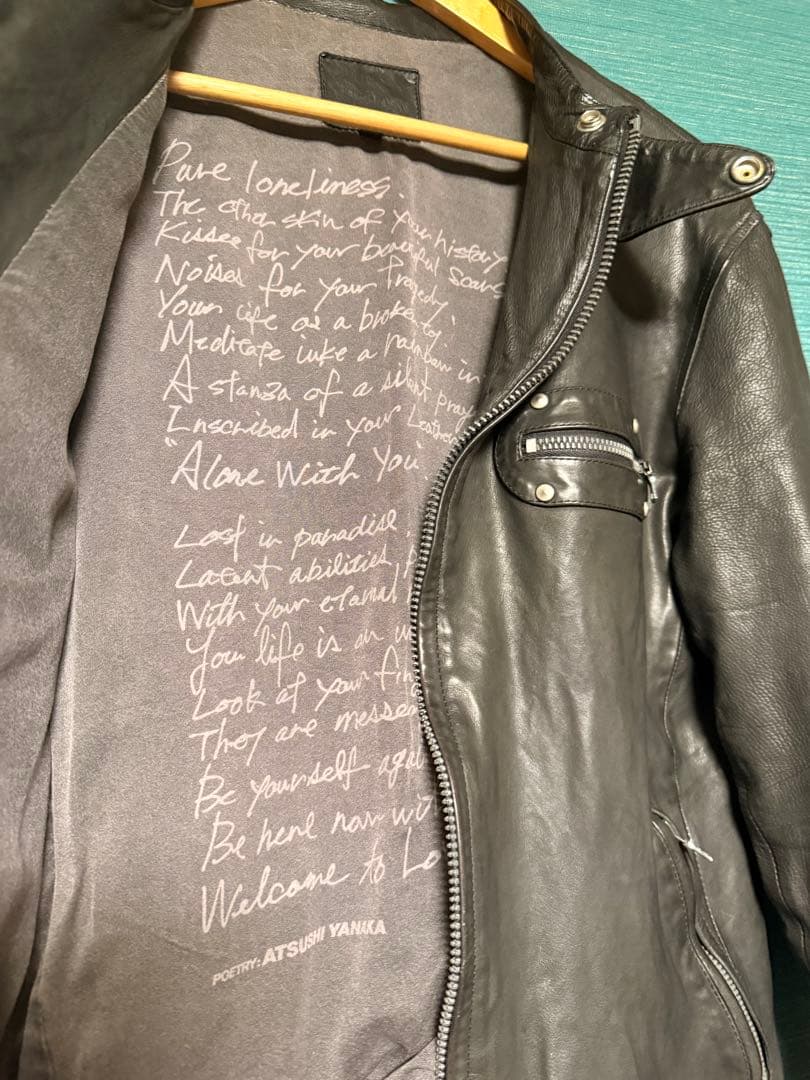 Pure loneliness.
The other skin of your history
Kisses for your beautiful scars
Noises for your tragedy.
Your life as a broken toy.
Meditate like a rainbow in
A stanza of a silent pray
Inscribed in your Leather
"Alone With You".
Lost in paradise
Latent abilities
With your eternal
Your life is an
Look at your
They are
Be yourself
Be here now
Welcome to
POETRY: ATSUSHI YANAKA